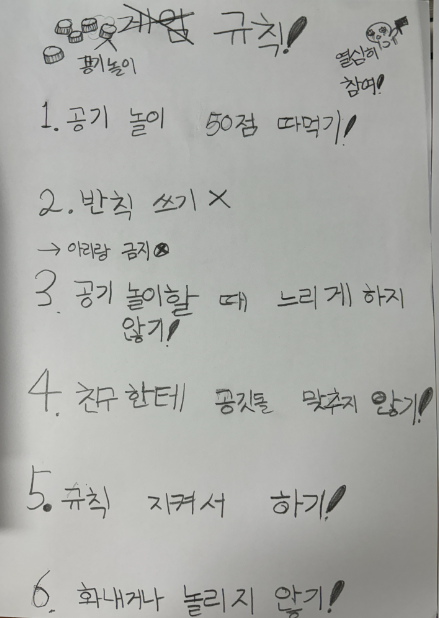 게임 규칙!
공기놀이
열심히
참여!
1. 공기 놀이 50점 따먹기!
2. 반칙 쓰기 X
→ 아리랑 금지
3. 공기 놀이할 때 느리게 하지
않기!
4. 친구한테 공깃돌 맞추지 않기!
5. 규칙 지켜서 하기!
6. 화내거나 놀리지 않기!